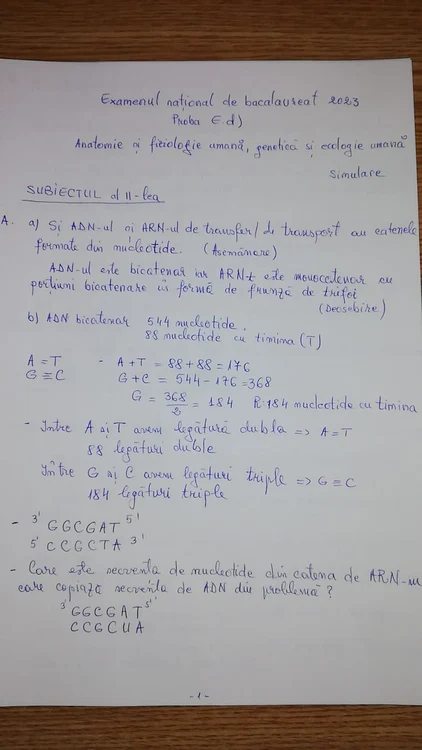 Examenul național de bacalaureat 2023
Proba E.d)
Anatomie și fiziologie umană, genetică și ecologie umană
Simulare
SUBIECTUL al II-lea
A. a) Și ADN-ul și ARN-ul de transfer/de transport au catenele
formate din nucleotide. (Asemănare)
ADN-ul este bicatenar iar ARN-t este monocatenar cu
porțiuni bicatenare în formă de frunză de trifoi
(Deosebire)
b) ADN bicatenar 544 nucleotide,
88 nucleotide cu timina (T)
A = T - A + T = 88 + 88 = 176
G ≡ C G + C = 544 - 176 = 368
G = 368/2 = 184 R: 184 nucleotide cu timina
- Între A și T avem legătură dublă => A = T
88 legături duble
Între G și C avem legături triple => G ≡ C
184 legături triple
- 3' GGCGAT 5'
5' CCGCTA 3'
- Care este secvența de nucleotide din catena de ARN-m
care copiază secvența de ADN din problemă?
3' GGCGAT 5'
CCGCUA
- 1 -